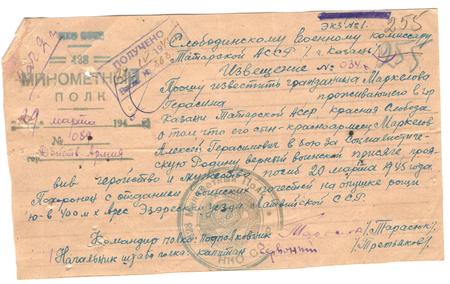 Экз №1.
255
Слободинскому военному комиссару
Татарской АССР / г. Казань/
Извещение № 034
НКО СССР
488
МИНОМЕТНЫЙ
ПОЛК
29 марта 194
№ 1087
Действ. Армия
ПОЛУЧЕНО
Прошу известить гражданина Маркелова
Герасима проживающего в гор
Казани Татарской АССР Красная Слобода
о том что его сын-красноармеец Маркелов
Алексей Герасимович в бою за Социалистиче-
скую Родину, верный воинской присяге прояв-
вив геройство и мужество погиб 20 марта 1945 года
Похоронен с отданием воинских почестей на опушке рощи
ю-в 400 м х. Эзерского уезда Латвийской ССР.
Командир полка Подполковник /Тарасюк/
Начальник штаба полка - капитан /Третьяков/